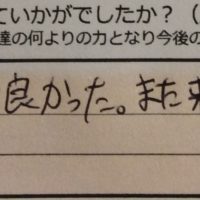 ていかがでしたか？（
達の何よりの力となり今後の
良かった。また